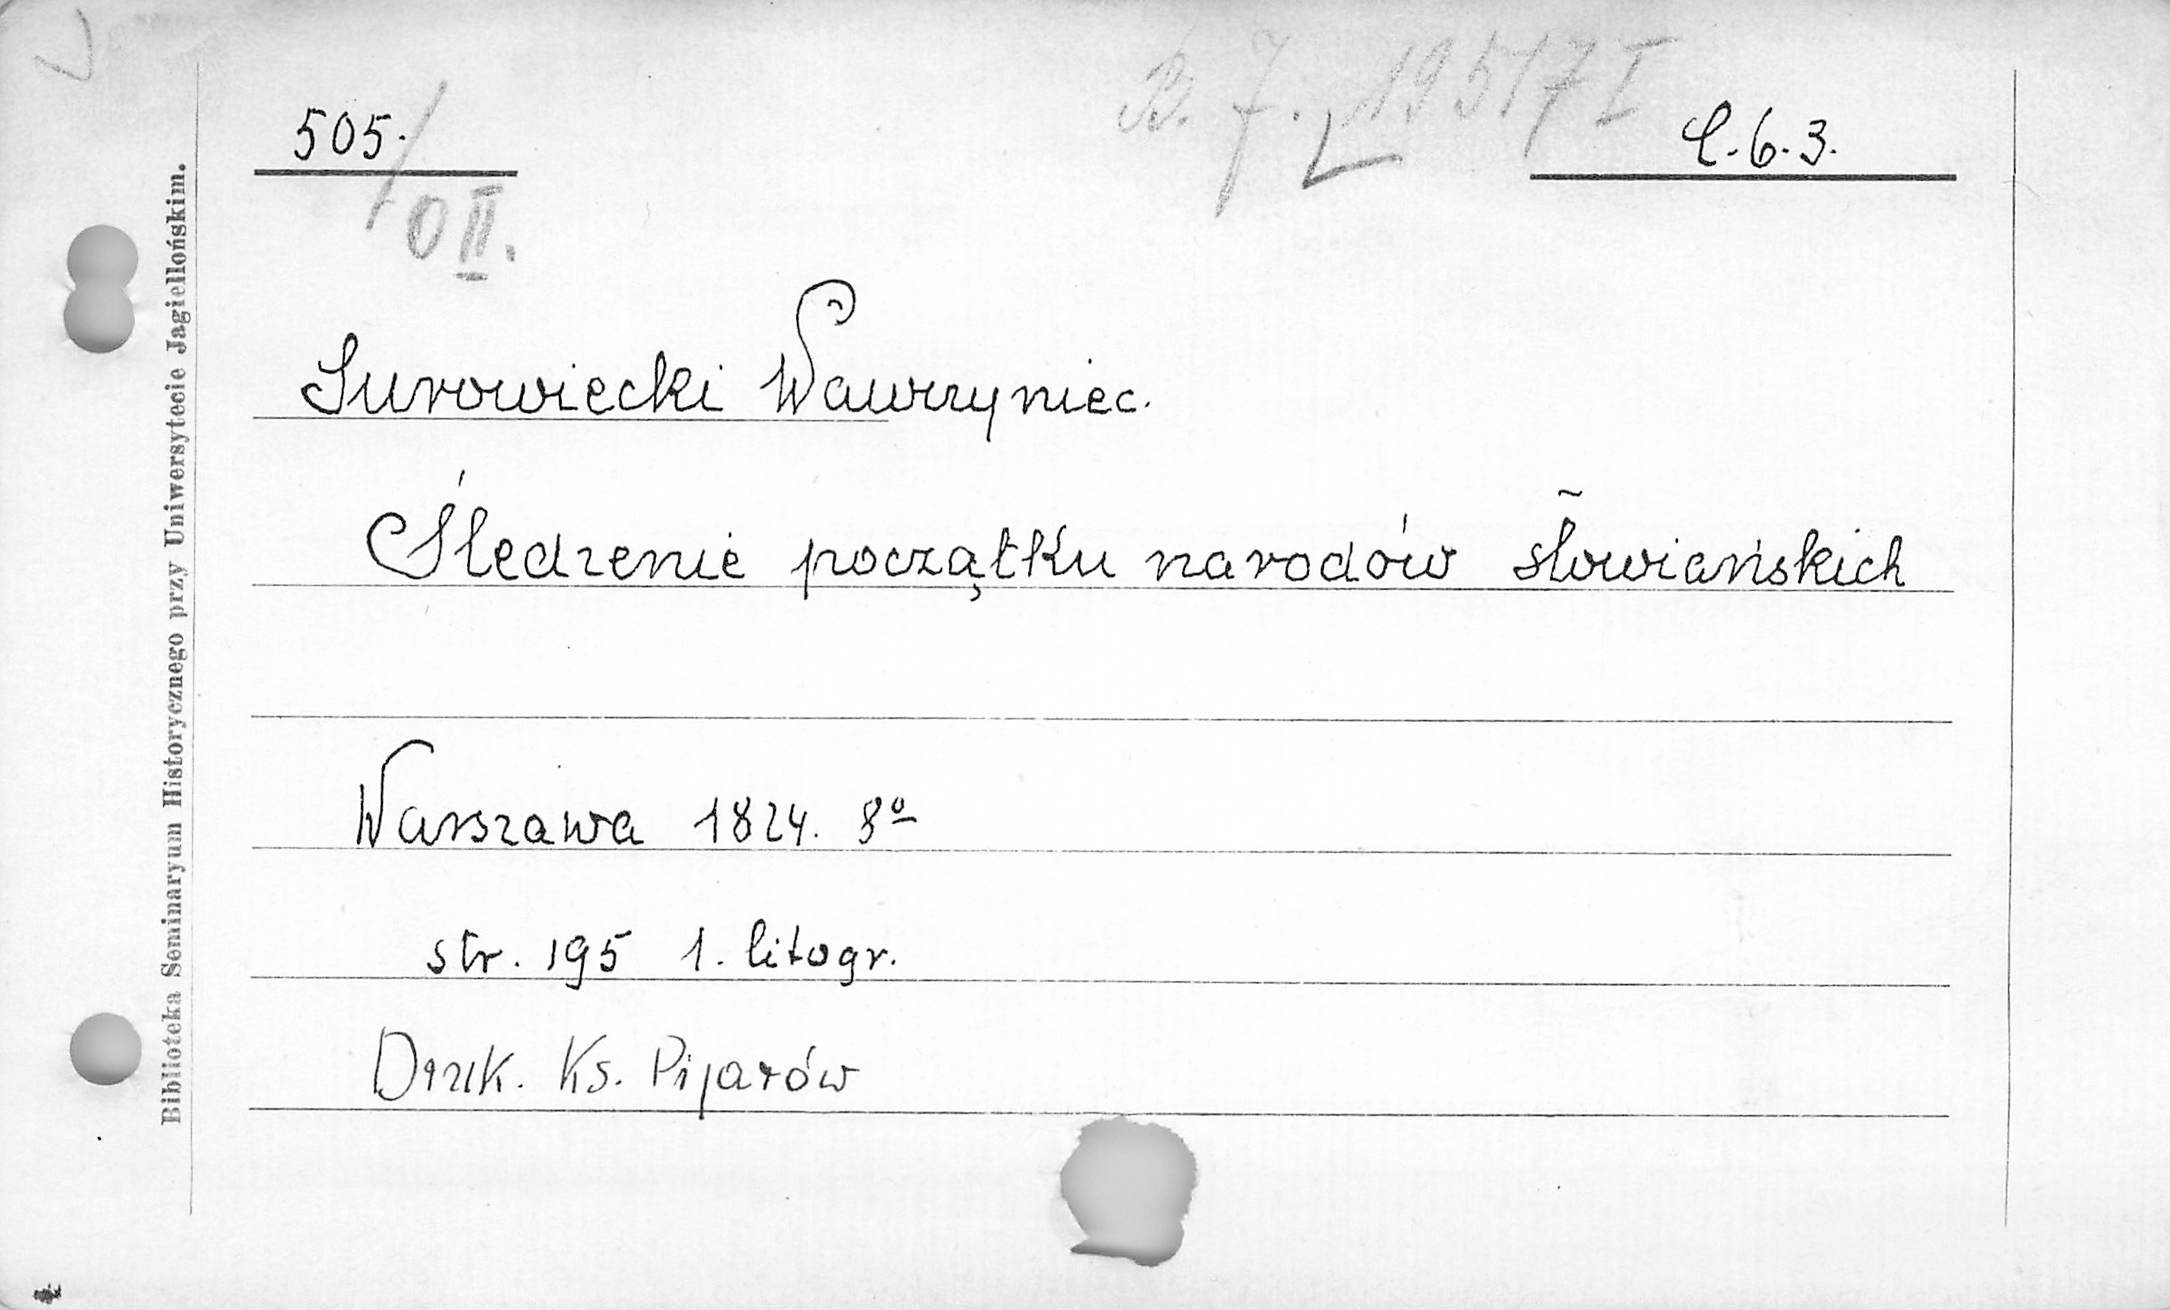 505.
B. J. 19517 I
C.6.3.
/O II.
Surowiecki Wawrzyniec.
Śledzenie początku narodów słowiańskich
Warszawa 1824. 8º
str. 195 1. litogr.
Druk. Ks. Pijarów
Biblioteka Seminaryum Historycznego przy Uniwersytecie Jagiellońskim.